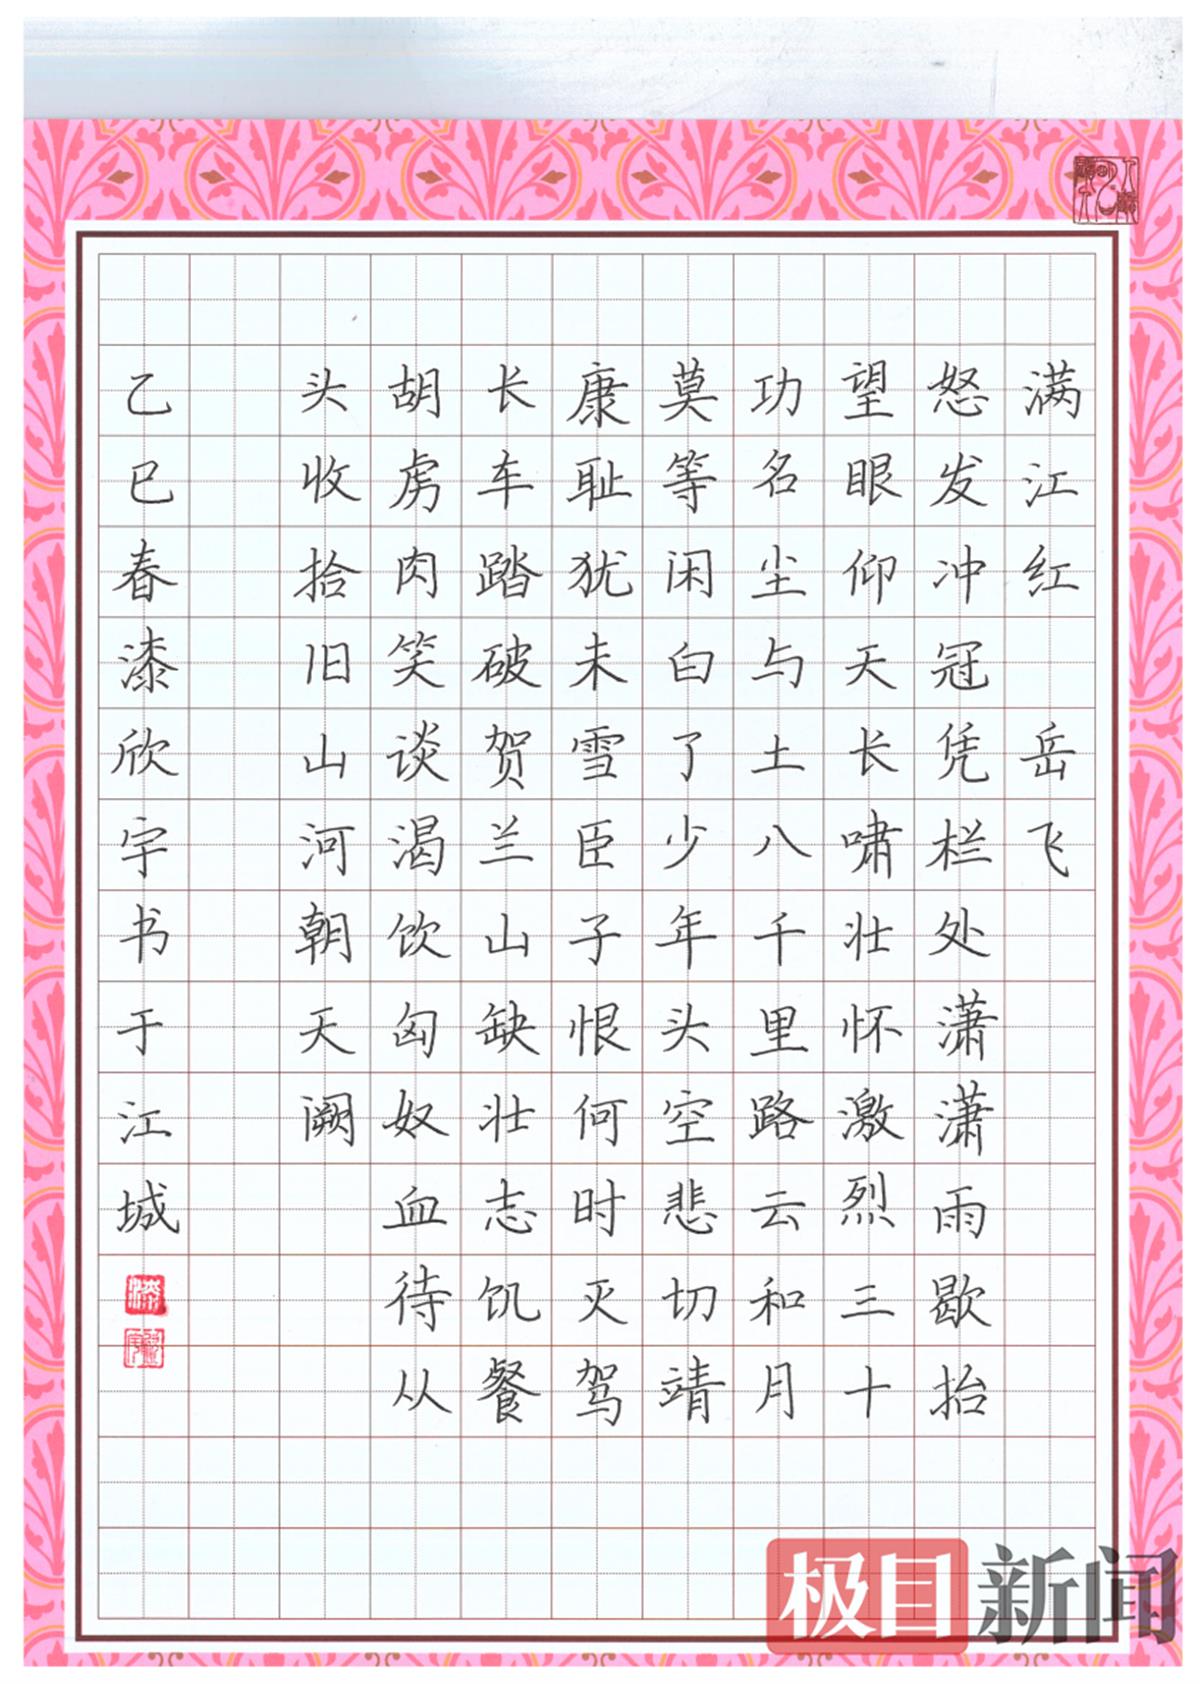 满江红 岳飞
怒发冲冠凭栏处潇潇雨歇抬
望眼仰天长啸壮怀激烈三十
功名尘与土八千里路云和月
莫等闲白了少年头空悲切靖
康耻犹未雪臣子恨何时灭驾
长车踏破贺兰山缺壮志饥餐
胡虏肉笑谈渴饮匈奴血待从
头收拾旧山河朝天阙
乙巳春漆欣宇书于江城
漆
极目新闻